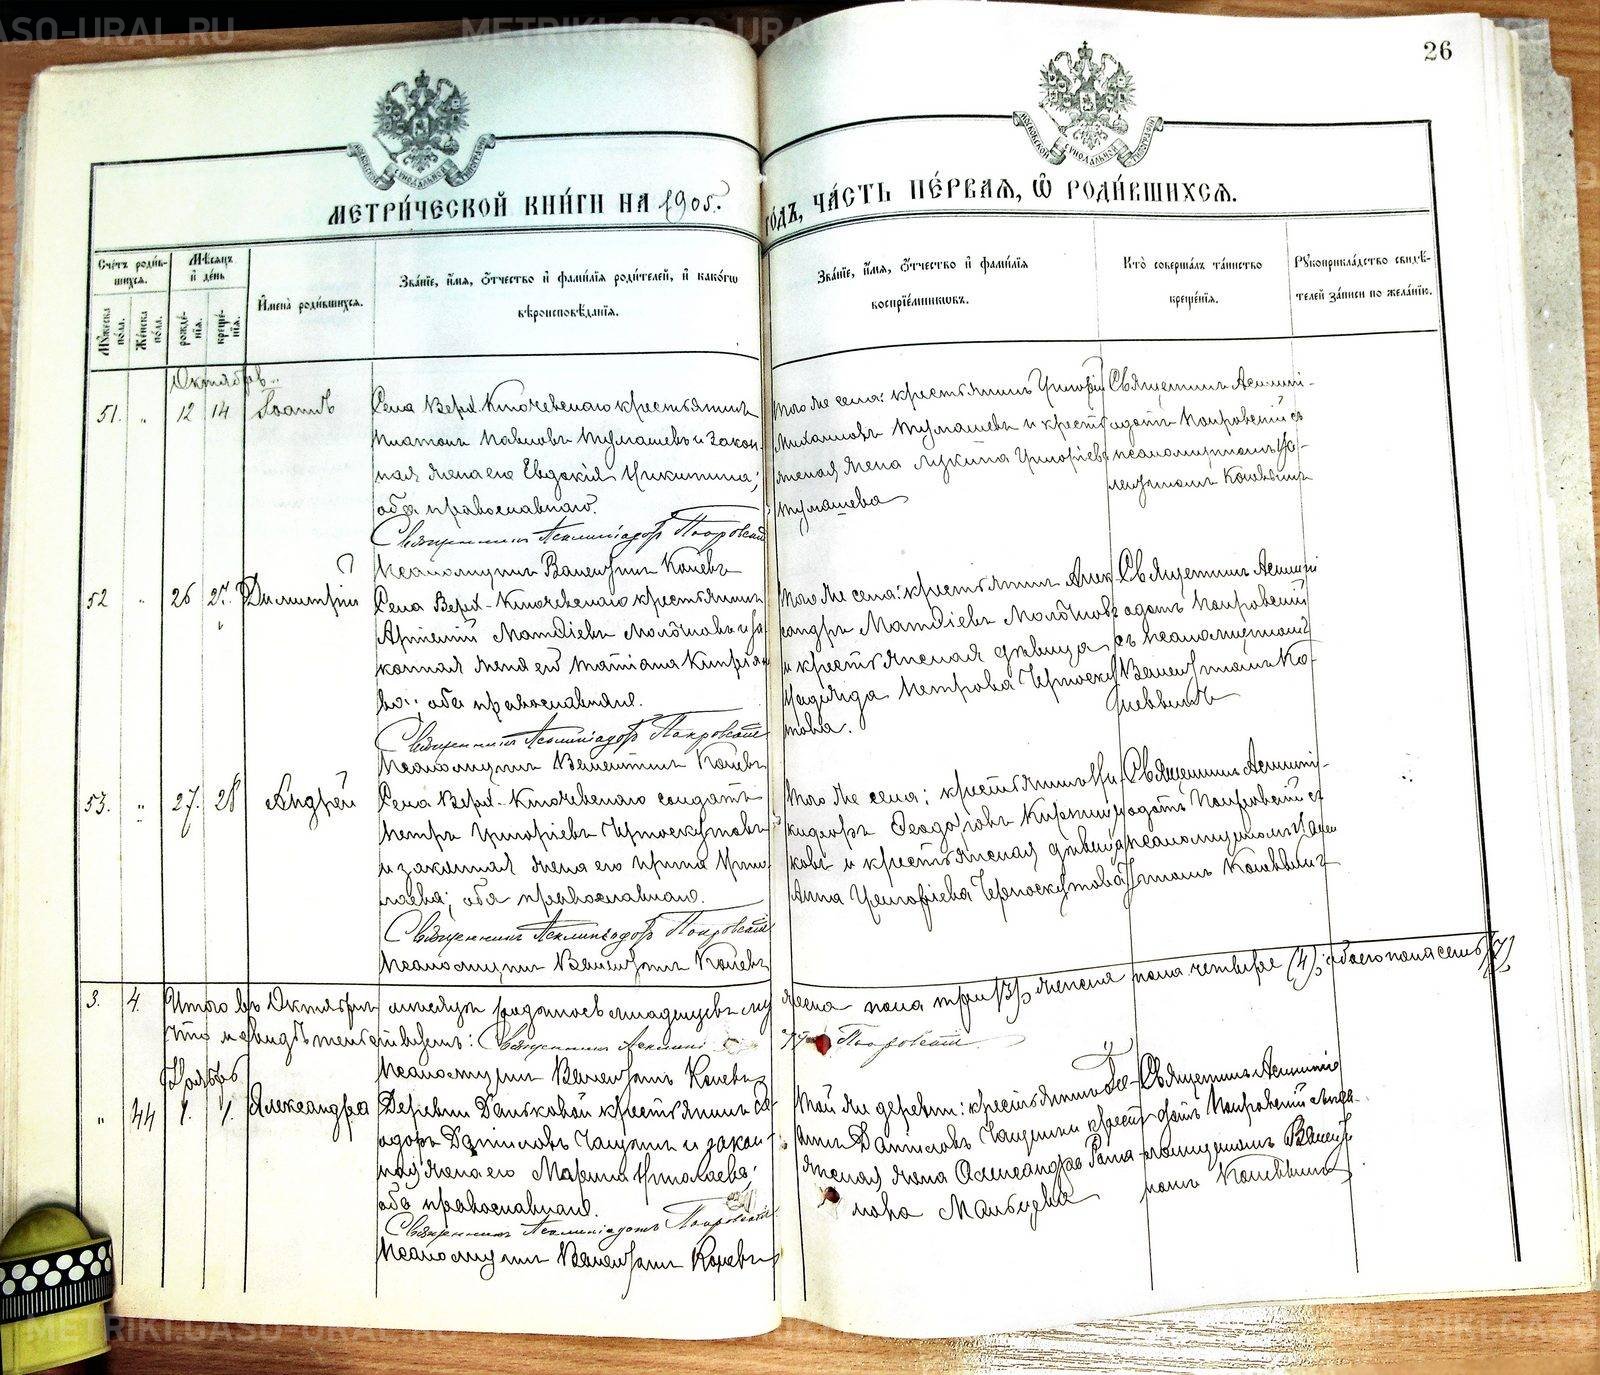 METRIKI.GASO-URAL.RU
26
МОСКОВСКОЙ СѴНОДАЛЬНОЙ ТИПОГРАФІИ
МЕТРИ́ЧЕСКОЙ КНИ́ГИ НА 1905 ГО́ДЪ, ЧА́СТЬ ПЕ́РВАЯ, Ѽ РОДИ́ВШИХСЯ.
Сче́тъ роди́вшихся.
Мꙋ́жеска по́ла.
Же́нска по́ла.
Мѣ́сяцъ и҆ де́нь
рожде́нїѧ.
креще́нїѧ.
И҆мена̀ роди́вшихся.
Зва́нїе, и҆́мѧ, ѻ҆́тчество и҆ фами́лїѧ роди́телей, и҆ како́гѡ
вѣроисповѣ́данїѧ.
Зва́нїе, и҆́мѧ, ѻ҆́тчество и҆ фами́лїѧ
воспрїе́мникѡвъ.
Кто̀ соверша́лъ та́инство
креще́нїѧ.
Рꙋкоприкла́дство свидѣ́телей за́писи по жела́нїю.
Октябрь
51. " 12 14 Іоаннъ
Села Верх-Ключевскаго крестьянинъ
Платонъ Павловъ Тумашевъ и закон-
ная жена его Евдокія Никитина;
оба православнаго.
Священникъ Асклипіадотъ Покровскій
Псаломщикъ Валентинъ Коневъ
Того же села: крестьянинъ Григорій
Михаиловъ Тумашевъ и кресть
янская жена Лукина Григорьева
Тумашева
Священникъ Асклипі-
адотъ Покровскій съ
псаломщикомъ Ва-
лентиномъ Коневымъ
52 " 26 27. Димитрій
Села Верх-Ключевскаго крестьянинъ
Артемій Матѳіевъ Молочковъ и за-
конная жена его Татіана Кипріяно-
ва; оба православныя.
Священникъ Асклипіадотъ Покровскій
Псаломщикъ Валентинъ Коневъ
Того же села: крестьянинъ Алек-
сандръ Матѳіевъ Молочковъ
и крестьянская дѣвица
Надежда Петрова Черноску-
това.
Священникъ Асклипі
адотъ Покровскій
съ псаломщикомъ
Валентиномъ Ко-
невымъ
53. " 27. 28 Андрей
Села Верх-Ключевскаго солдатъ
Петръ Григоріевъ Черноскутовъ
и законная жена его Ирина Нико-
лаева; оба православнаго.
Священникъ Асклипіадотъ Покровскій
Псаломщикъ Валентинъ Коневъ
Того же села: крестьянинъ Ни-
кифоръ Ѳеодоровъ
и крестьянская дѣвица
Анна Григоріева Черноскутова
Священникъ Асклипі-
адотъ Покровскій съ
псаломщикомъ Вален
тиномъ Коневымъ
3. 4. Итого въ Октябрѣ мѣсяцѣ родилось младенцевъ мужеска пола три (3), женска пола четыре (4); обоего пола семь (7)
Что и свидѣтельствуемъ: Священникъ Асклипі Покровскій
Псаломщикъ Валентинъ Коневъ
Ноябрь
" 44 1. 1. Александра
Деревни Даньковой крестьянинъ Ѳе-
одоръ Даниловъ Чащинъ и закон-
ная жена его Марина Николаева;
оба православнаго.
Священникъ Асклипіадотъ Покровскій
Псаломщикъ Валентинъ Коневъ
Той же деревни: крестьянинъ
Даниловъ Чащинъ и крестъ
янская жена Александра Рома-
нова
Священникъ Асклипіа
дотъ Покровскій съ пса-
ломщикомъ Валенти
номъ Коневымъ
METRIKI.GASO-URAL.RU